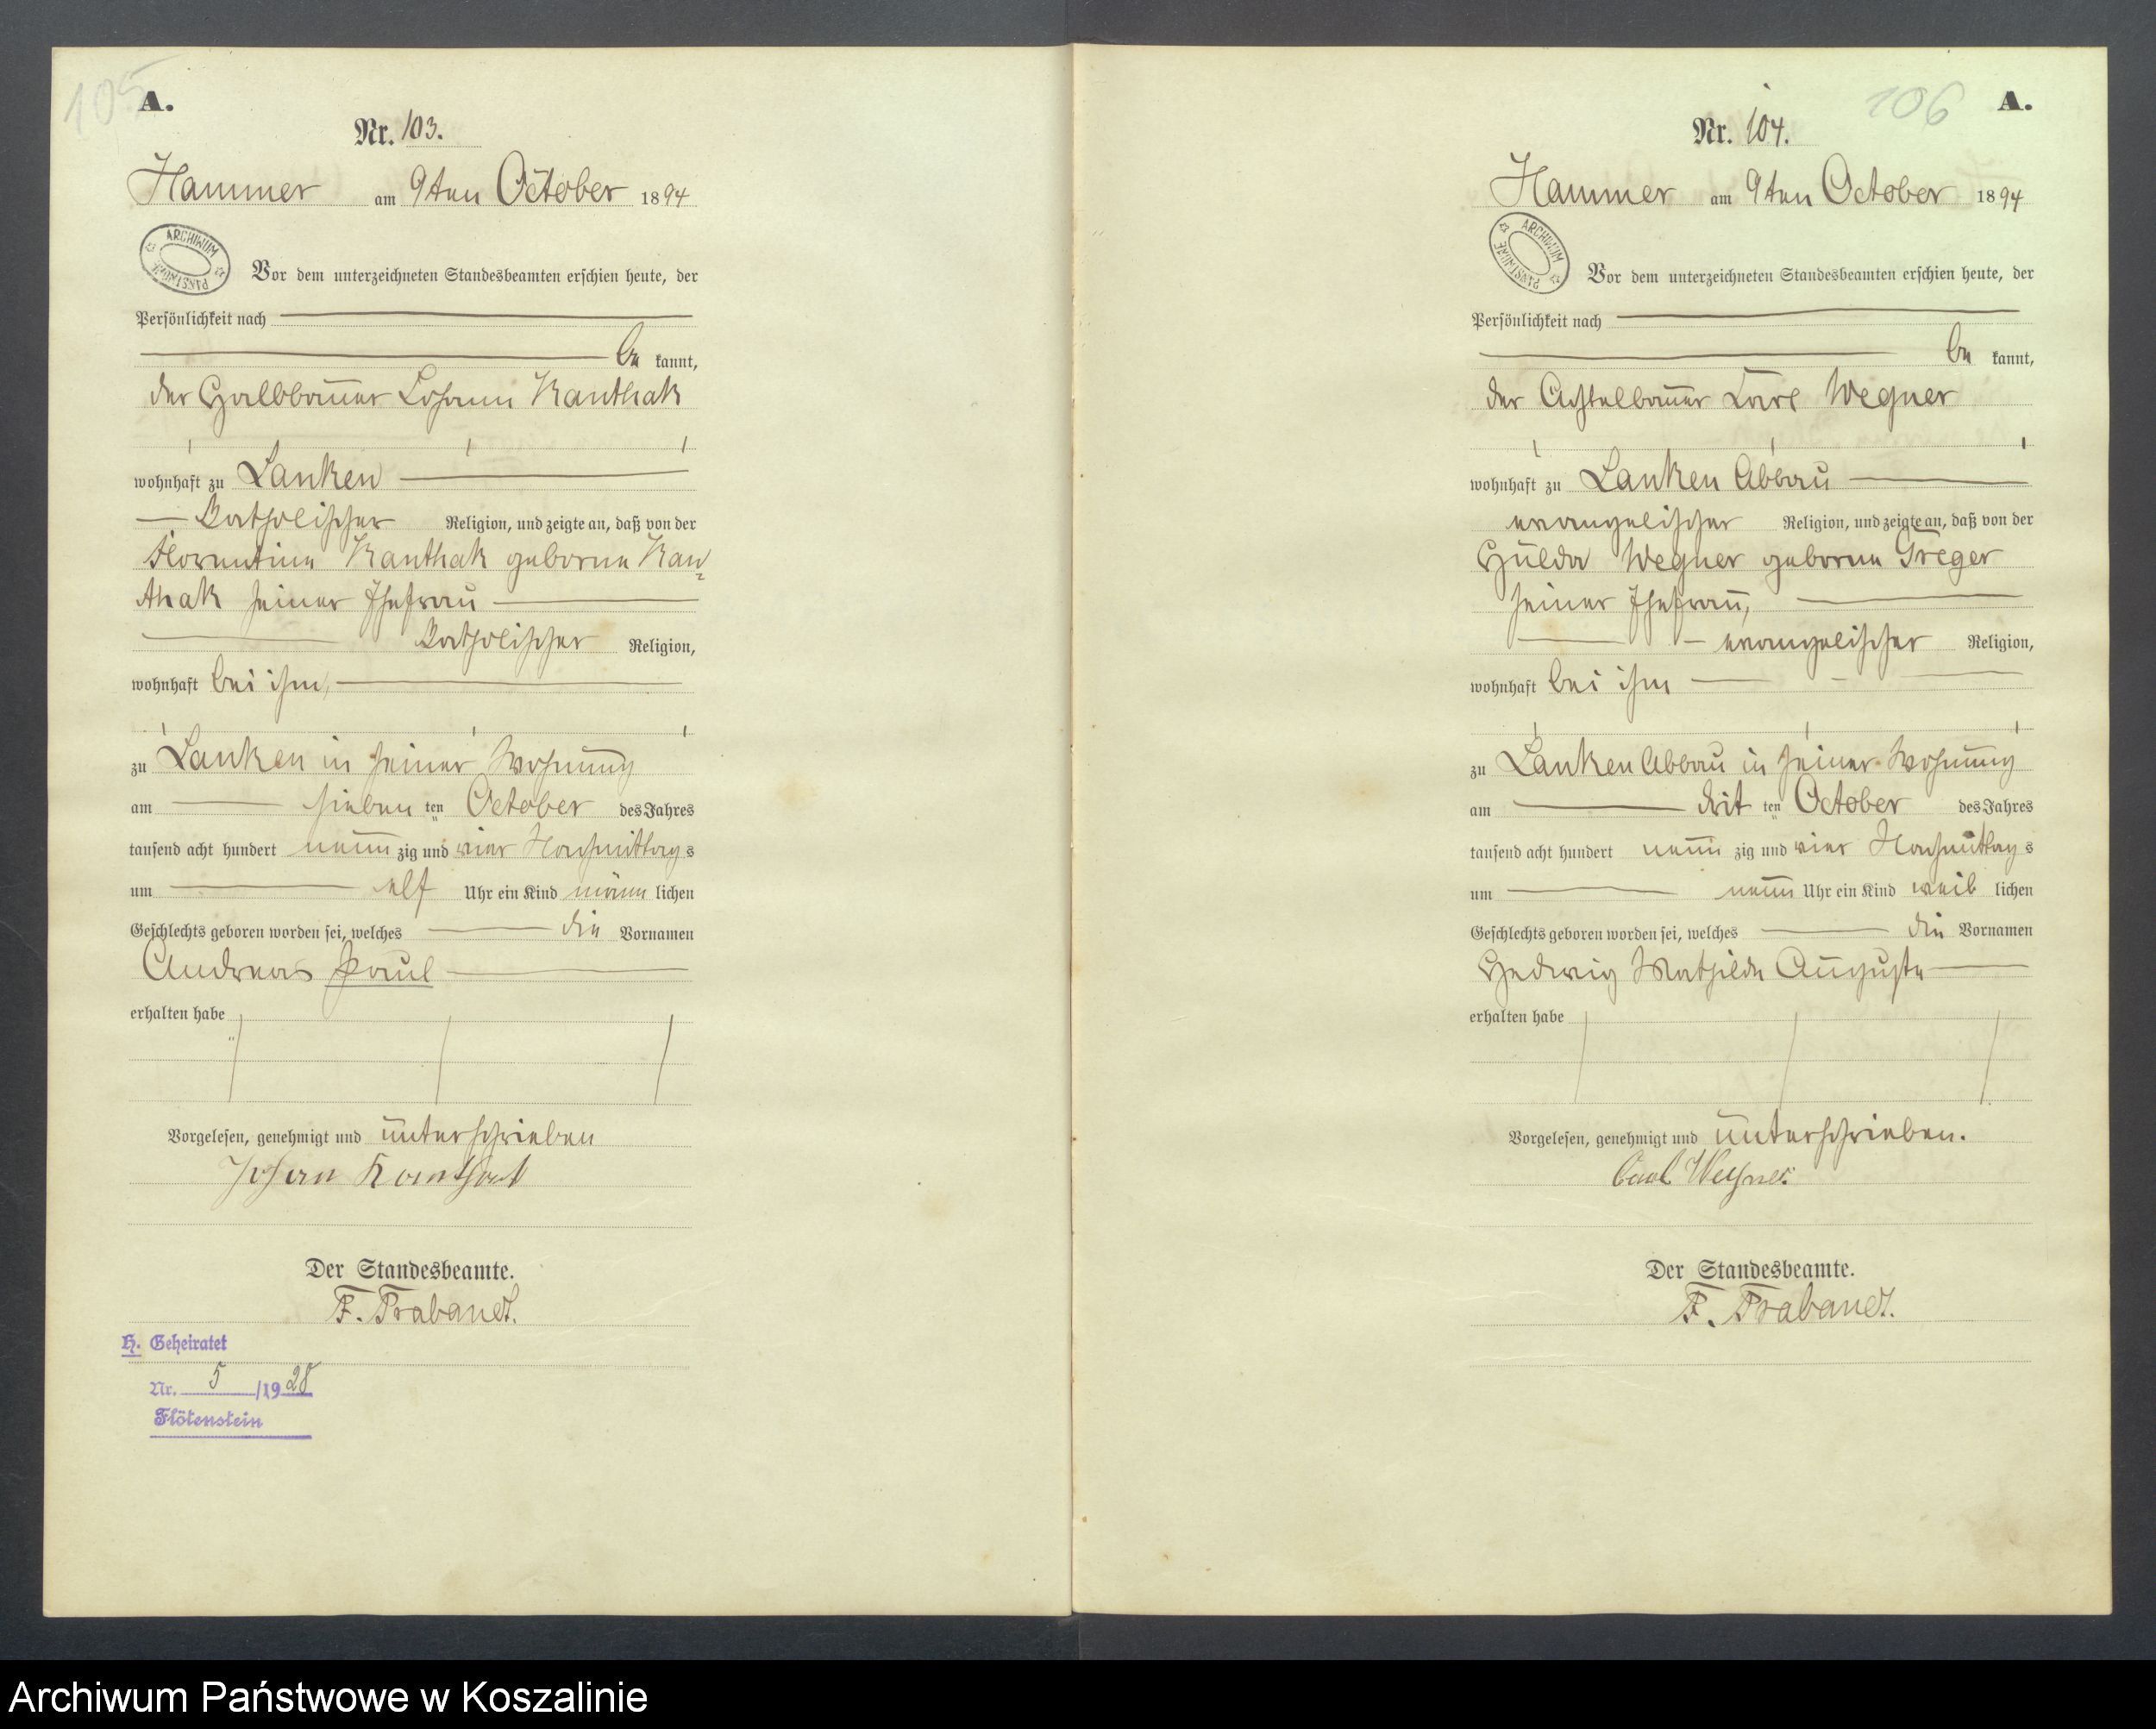 105
A.
Nr. 103.
Hammer am 9ten October 1894
ARCHIWUM PAŃSTWOWE
Vor dem unterzeichneten Standesbeamten erschien heute, der
Persönlichkeit nach
be kannt,
der Halbbauer Johann Kanthak
wohnhaft zu Lanken
katholischer Religion, und zeigte an, daß von der
Florentine Kanthak geborne Kan=
thak seiner Ehefrau
katholischer Religion,
wohnhaft bei ihm,
zu Lanken in seiner Wohnung
am sieben ten October des Jahres
tausend acht hundert neun zig und vier Nachmittag s
um elf Uhr ein Kind männ lichen
Geschlechts geboren worden sei, welches die Vornamen
Andreas Paul
erhalten habe
Vorgelesen, genehmigt und unterschrieben
Johan Kanthak
Der Standesbeamte.
F. Trabandt.
H. Geheiratet
Nr. 5 /1928
Flötenstein
106
A.
Nr. 104.
Hammer am 9ten October 1894
ARCHIWUM PAŃSTWOWE
Vor dem unterzeichneten Standesbeamten erschien heute, der
Persönlichkeit nach
be kannt,
der Achtelbauer Carl Wegner
wohnhaft zu Lanken Abbau
evangelischer Religion, und zeigte an, daß von der
Hulda Wegner geborne Treger
seiner Ehefrau,
evangelischer Religion,
wohnhaft bei ihm
zu Lanken Abbau in seiner Wohnung
am drit ten October des Jahres
tausend acht hundert neun zig und vier Nachmittag s
um neun Uhr ein Kind weib lichen
Geschlechts geboren worden sei, welches die Vornamen
Hedwig Mathilde Auguste
erhalten habe
Vorgelesen, genehmigt und unterschrieben.
Carl Wegner
Der Standesbeamte.
F. Trabandt.
Archiwum Państwowe w Koszalinie